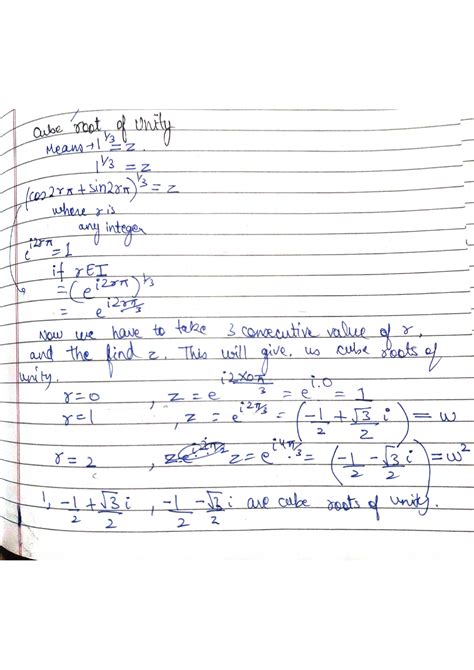 Cube root of Unity
Means → 1^{1/3} = z.
1^{1/3} = z
(cos2rπ + sin2rπ)^{1/3} = z
where r is
any integer
e^{i2rπ} = 1
if r∈I
= (e^{i2rπ})^{1/3}
= e^{i2rπ/3}
now we have to take 3 consecutive value of r,
and the find z. This will give us cube roots of
unity.
r=0 , z = e^{i2×0π/3} = e^{i.0} = 1
r=1 , z = e^{i2π/3} = (-1/2 + √3/2 i) = w
r=2 , z = e^{i4π/3} = (-1/2 - √3/2 i) = w²
1, -1/2 + √3/2 i , -1/2 - √3/2 i are cube roots of unity.